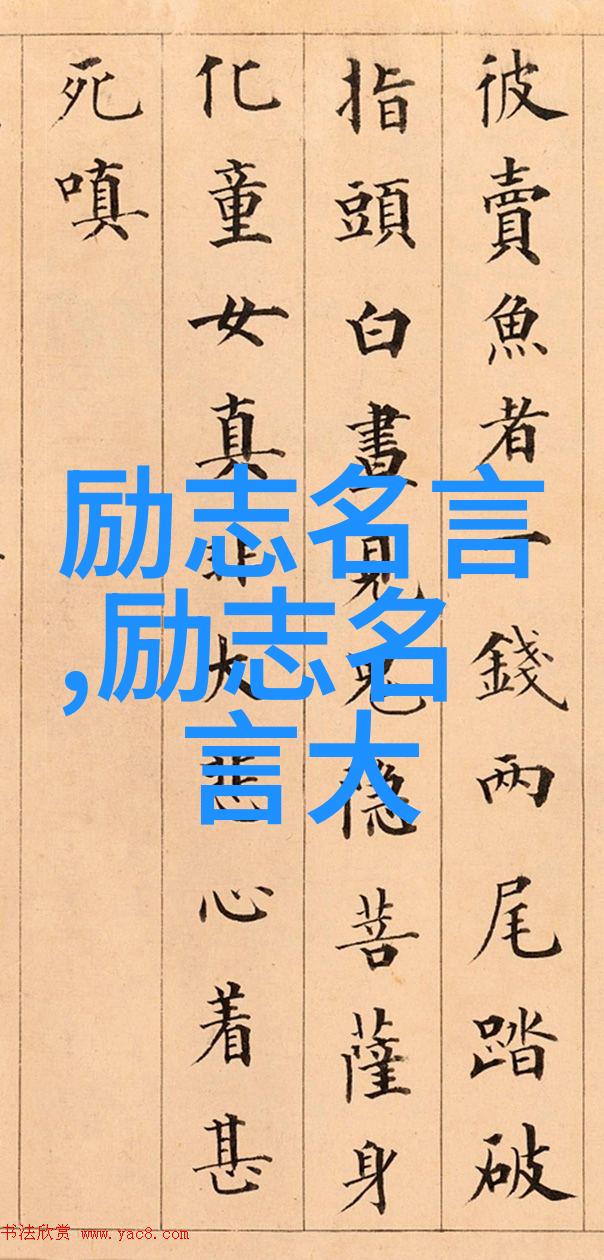 彼賣魚者一錢兩尾踏破
指頭白晝見鬼隐菩薩身
化童女真非大悲心着甚
死嗔
励志名言
,励志名
言大
书法欣赏 www.yac8.com